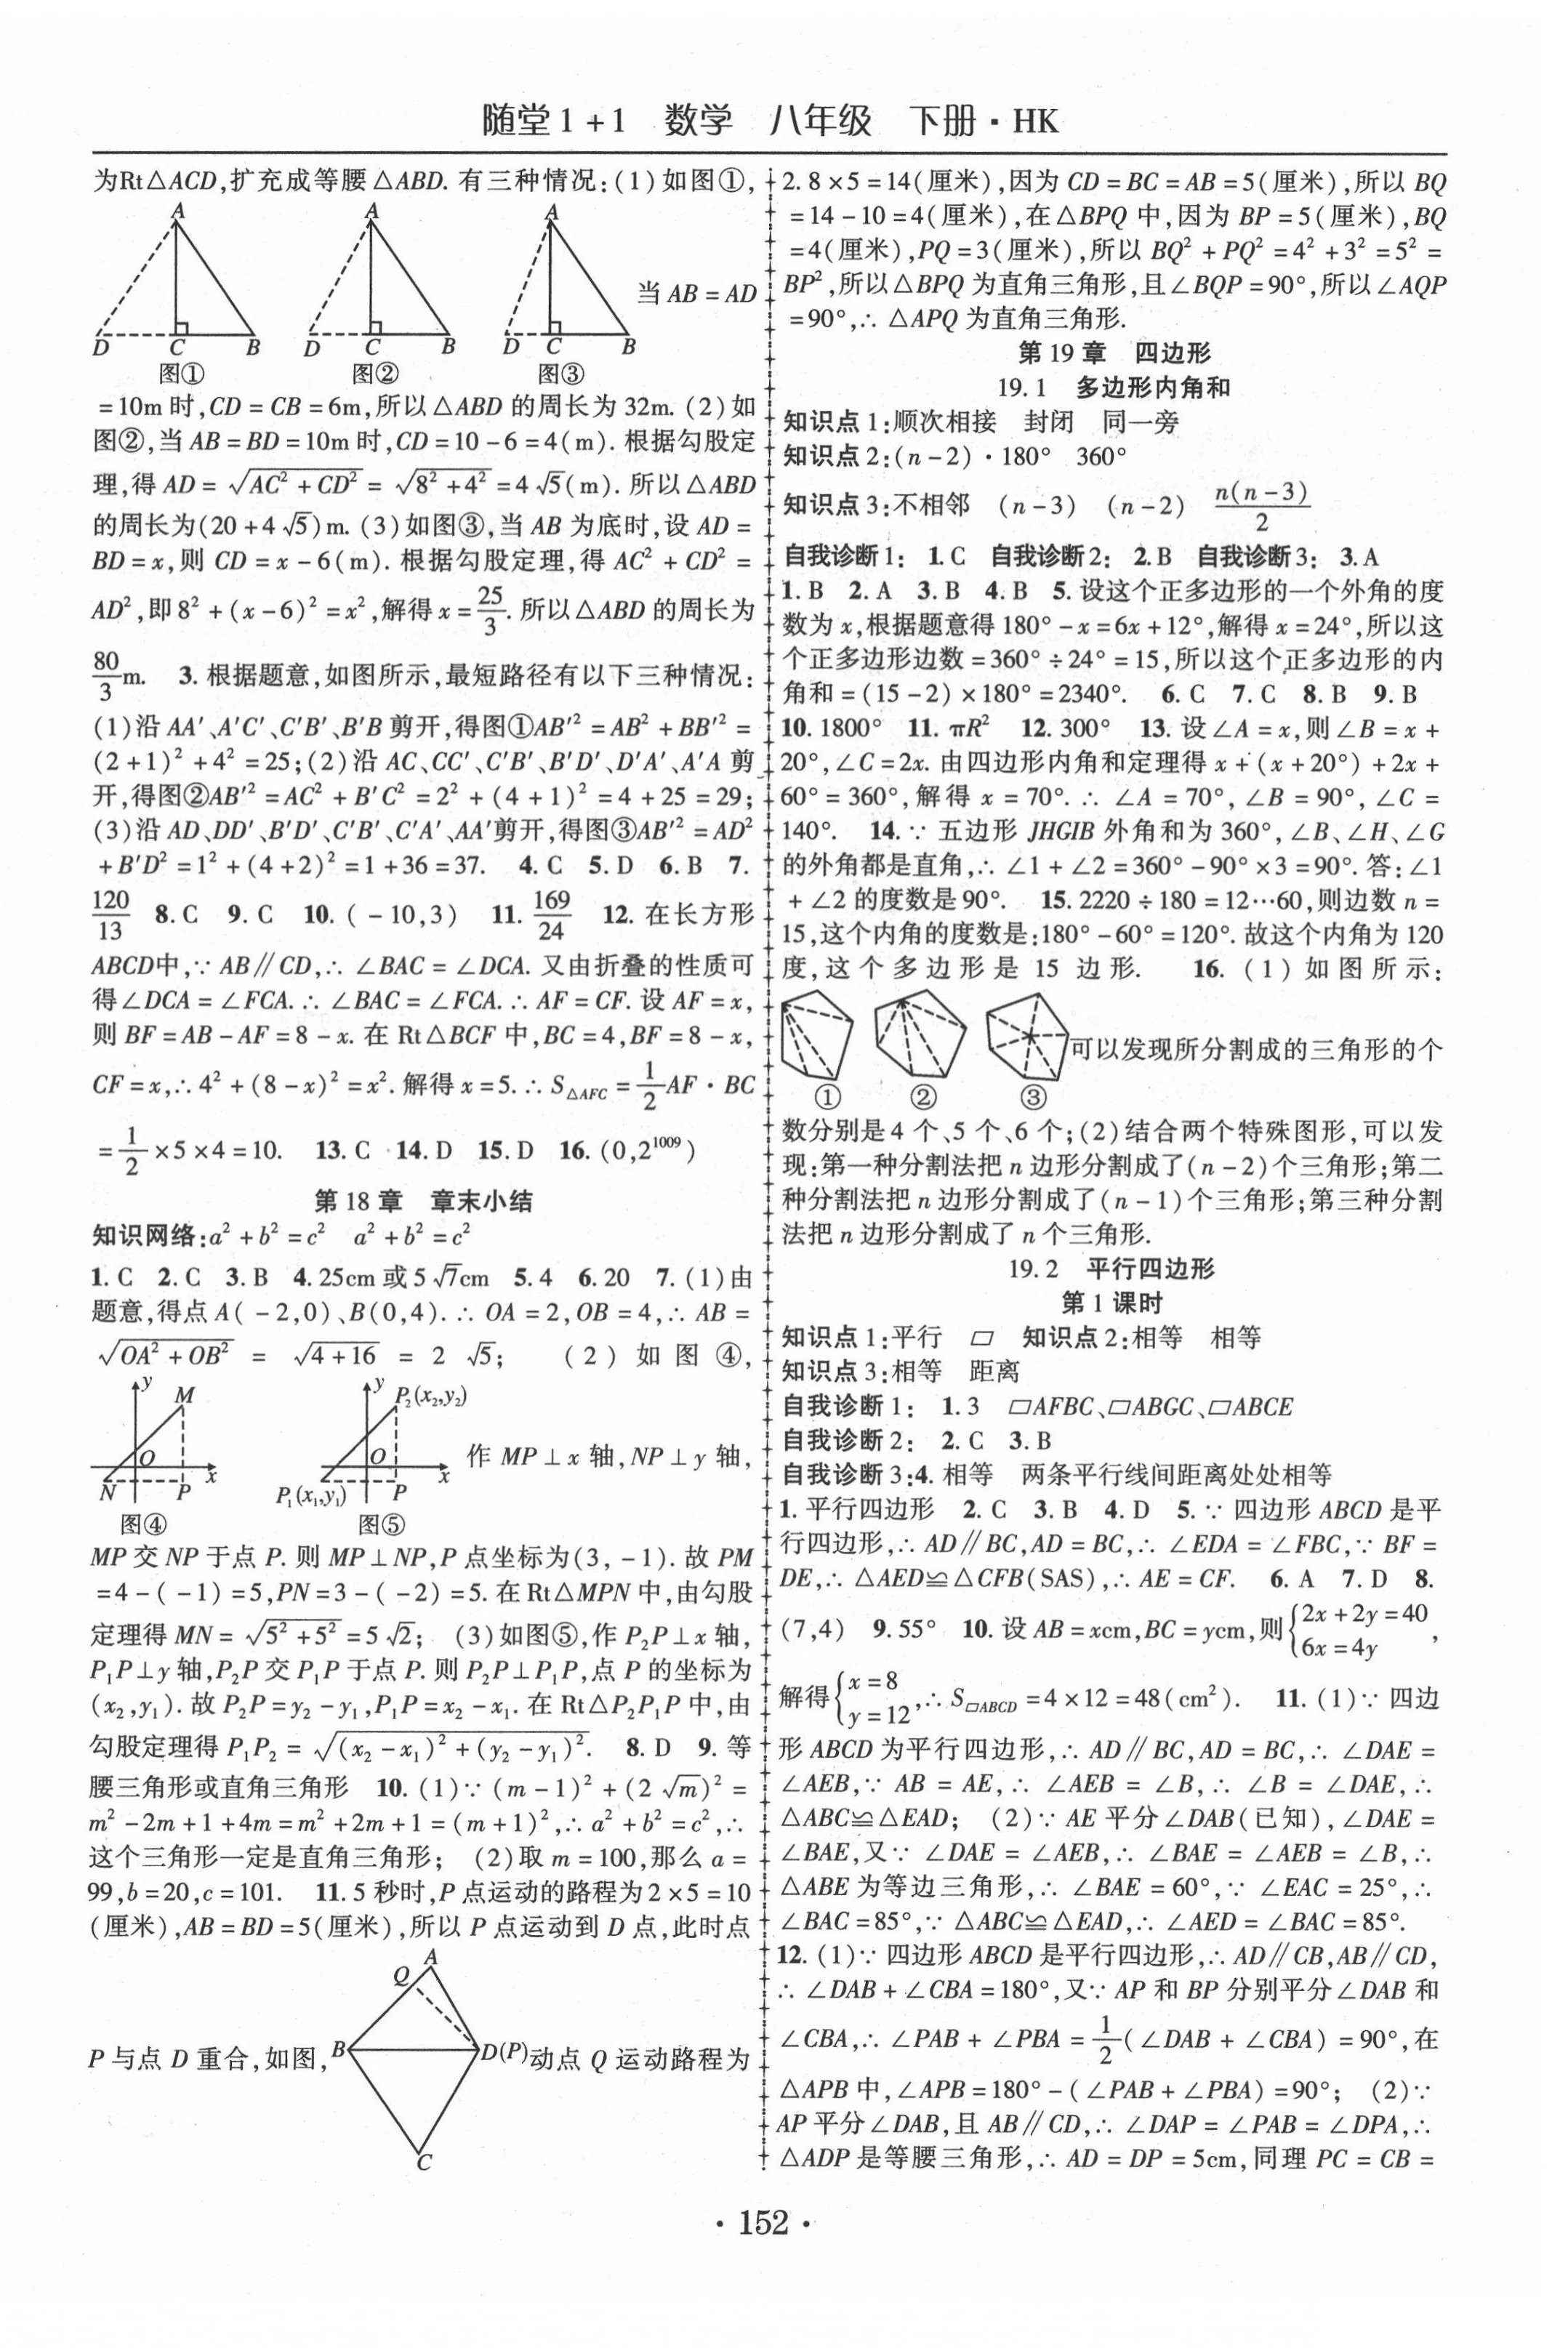 随堂1+1 数学 八年级 下册·HK
为Rt△ACD,扩充成等腰△ABD.有三种情况:(1)如图①,
A A A
D C B D C B D C B
当AB=AD
图① 图② 图③
=10m时,CD=CB=6m,所以△ABD的周长为32m. (2)如
图②,当AB=BD=10m时,CD=10-6=4(m).根据勾股定
理,得AD=√(AC²+CD²)=√(8²+4²)=4√5(m).所以△ABD
的周长为(20+4√5)m. (3)如图③,当AB为底时,设AD=
BD=x,则CD=x-6(m).根据勾股定理,得AC²+CD²=
AD²,即8²+(x-6)²=x²,解得x=25/3.所以△ABD的周长为
80/3m. 3.根据题意,如图所示,最短路径有以下三种情况:
(1)沿AA′、A′C′、C′B′、B′B剪开,得图①AB′²=AB²+BB′²=
(2+1)²+4²=25;(2)沿AC、CC′、C′B′、B′D′、D′A′、A′A剪
开,得图②AB′²=AC²+B′C²=2²+(4+1)²=4+25=29;
(3)沿AD、DD′、B′D′、C′B′、C′A′、AA′剪开,得图③AB′²=AD²
+B′D²=1²+(4+2)²=1+36=37. 4.C 5.D 6.B 7.
120/13 8.C 9.C 10.(-10,3) 11.169/24 12.在长方形
ABCD中,∵AB∥CD,∴∠BAC=∠DCA.又由折叠的性质可
得∠DCA=∠FCA.∴∠BAC=∠FCA.∴AF=CF.设AF=x,
则BF=AB-AF=8-x.在Rt△BCF中,BC=4,BF=8-x,
CF=x,∴4²+(8-x)²=x².解得x=5.∴S△AFC=1/2AF·BC
=1/2×5×4=10. 13.C 14.D 15.D 16.(0,2¹⁰⁰⁹)
第18章 章末小结
知识网络:a²+b²=c² a²+b²=c²
1.C 2.C 3.B 4.25cm或5√7cm 5.4 6.20 7.(1)由
题意,得点A(-2,0)、B(0,4).∴OA=2,OB=4,∴AB=
√(OA²+OB²)=√(4+16)=2√5; (2)如图④,
y M O x N P
y P₂(x₂,y₂) O x P₁(x₁,y₁) P
作MP⊥x轴,NP⊥y轴,
图④ 图⑤
MP交NP于点P.则MP⊥NP,P点坐标为(3,-1).故PM
=4-(-1)=5,PN=3-(-2)=5.在Rt△MPN中,由勾股
定理得MN=√(5²+5²)=5√2; (3)如图⑤,作P₂P⊥x轴,
P₁P⊥y轴,P₂P交P₁P于点P.则P₂P⊥P₁P,点P的坐标为
(x₂,y₁).故P₂P=y₂-y₁,P₁P=x₂-x₁.在Rt△P₂P₁P中,由
勾股定理得P₁P₂=√((x₂-x₁)²+(y₂-y₁)²). 8.D 9.等
腰三角形或直角三角形 10.(1)∵(m-1)²+(2√m)²=
m²-2m+1+4m=m²+2m+1=(m+1)²,∴a²+b²=c²,∴
这个三角形一定是直角三角形; (2)取m=100,那么a=
99,b=20,c=101. 11.5秒时,P点运动的路程为2×5=10
(厘米),AB=BD=5(厘米),所以P点运动到D点,此时点
A Q B D(P) C
P与点D重合,如图,动点Q运动路程为
2.8×5=14(厘米),因为CD=BC=AB=5(厘米),所以BQ
=14-10=4(厘米),在△BPQ中,因为BP=5(厘米),BQ
=4(厘米),PQ=3(厘米),所以BQ²+PQ²=4²+3²=5²=
BP²,所以△BPQ为直角三角形,且∠BQP=90°,所以∠AQP
=90°,∴△APQ为直角三角形.
第19章 四边形
19.1 多边形内角和
知识点1:顺次相接 封闭 同一旁
知识点2:(n-2)·180° 360°
知识点3:不相邻 (n-3) (n-2) n(n-3)/2
自我诊断1: 1.C 自我诊断2: 2.B 自我诊断3: 3.A
1.B 2.A 3.B 4.B 5.设这个正多边形的一个外角的度
数为x,根据题意得180°-x=6x+12°,解得x=24°,所以这
个正多边形边数=360°÷24°=15,所以这个正多边形的内
角和=(15-2)×180°=2340°. 6.C 7.C 8.B 9.B
10.1800° 11.πR² 12.300° 13.设∠A=x,则∠B=x+
20°,∠C=2x.由四边形内角和定理得x+(x+20°)+2x+
60°=360°,解得x=70°.∴∠A=70°,∠B=90°,∠C=
140°. 14.∵五边形JHGIB外角和为360°,∠B、∠H、∠G
的外角都是直角,∴∠1+∠2=360°-90°×3=90°.答:∠1
+∠2的度数是90°. 15.2220÷180=12…60,则边数n=
15,这个内角的度数是:180°-60°=120°.故这个内角为120
度,这个多边形是15边形. 16.(1)如图所示:
可以发现所分割成的三角形的个
① ② ③
数分别是4个、5个、6个;(2)结合两个特殊图形,可以发
现:第一种分割法把n边形分割成了(n-2)个三角形;第二
种分割法把n边形分割成了(n-1)个三角形;第三种分割
法把n边形分割成了n个三角形.
19.2 平行四边形
第1课时
知识点1:平行 ▱ 知识点2:相等 相等
知识点3:相等 距离
自我诊断1: 1.3 ▱AFBC、▱ABGC、▱ABCE
自我诊断2: 2.C 3.B
自我诊断3:4.相等 两条平行线间距离处处相等
1.平行四边形 2.C 3.B 4.D 5.∵四边形ABCD是平
行四边形,∴AD∥BC,AD=BC,∴∠EDA=∠FBC,∵BF=
DE,∴△AED≌△CFB(SAS),∴AE=CF. 6.A 7.D 8.
(7,4) 9.55° 10.设AB=xcm,BC=ycm,则{2x+2y=40 6x=4y,
解得{x=8 y=12,∴S▱ABCD=4×12=48(cm²). 11.(1)∵四边
形ABCD为平行四边形,∴AD∥BC,AD=BC,∴∠DAE=
∠AEB,∵AB=AE,∴∠AEB=∠B,∴∠B=∠DAE,∴
△ABC≌△EAD; (2)∵AE平分∠DAB(已知),∠DAE=
∠BAE,又∵∠DAE=∠AEB,∴∠BAE=∠AEB=∠B,∴
△ABE为等边三角形,∴∠BAE=60°,∵∠EAC=25°,∴
∠BAC=85°,∵△ABC≌△EAD,∴∠AED=∠BAC=85°.
12.(1)∵四边形ABCD是平行四边形,∴AD∥CB,AB∥CD,
∴∠DAB+∠CBA=180°,又∵AP和BP分别平分∠DAB和
∠CBA,∴∠PAB+∠PBA=1/2(∠DAB+∠CBA)=90°,在
△APB中,∠APB=180°-(∠PAB+∠PBA)=90°; (2)∵
AP平分∠DAB,且AB∥CD,∴∠DAP=∠PAB=∠DPA,∴
△ADP是等腰三角形,∴AD=DP=5cm,同理PC=CB=
·152·